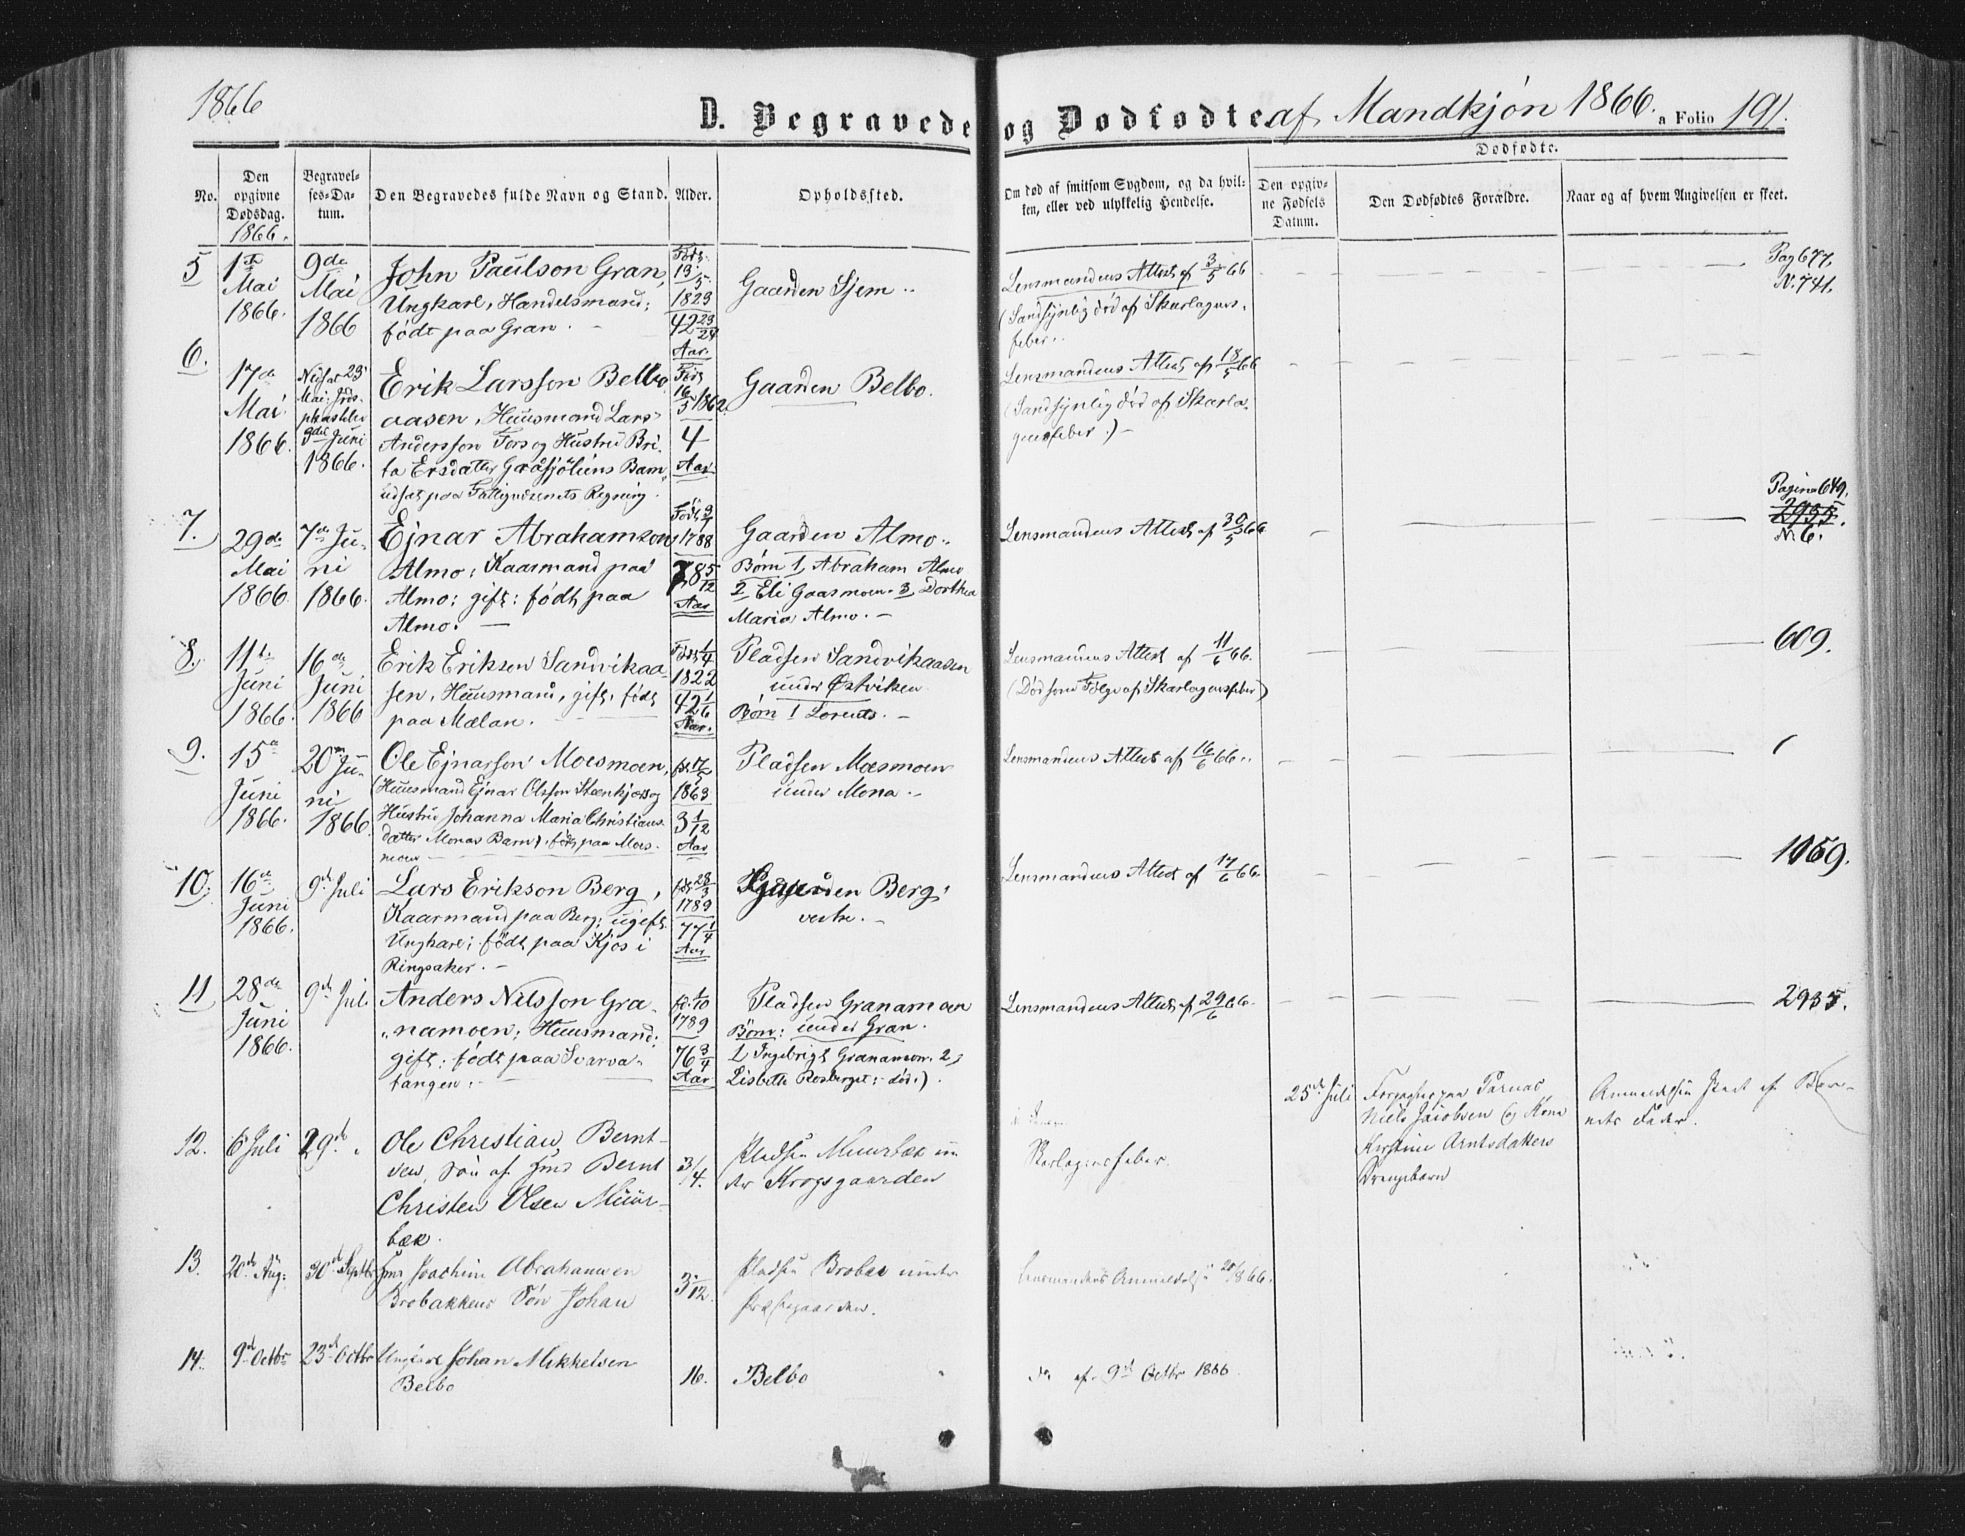 1866
D. Begravede og Dødfødte af Mandkjøn 1866. a Folio 191.
No.
Den opgivne Dødsdag. 1866.
Begravelses-Datum.
Den Begravedes fulde Navn og Stand.
Alder.
Opholdssted.
Om død af smitsom Sygdom, og da hvilken, eller ved ulykkelig Hendelse.
Dødfødte.
Den opgivne Fødsels Datum.
Den Dødfødtes Forældre.
Naar og af hvem Angivelsen er skeet.
5
1ste Mai 1866.
9de Mai 1866
John Paulson Gran,
Ungkarl, Handelsmand;
født paa Gran.
Født 13/5 1823
42 23/24 Aar.
Gaarden Sjem.
Lensmandens Attest af 3/5 66
(Sandsynlig død af Skarlagens-
feber.
Pag 677.
N. 741.
6.
17de Mai 1866.
Mai
Juni 1866.
Erik Larsson Belbo-
aasen, Huusmand Lars
Andersson Fors og Hustru Bri-
ta Ersdatter Graasjøliens Barn,
udsat paa Fattigvæsenets Regning.
Født 16/5 1862.
4 Aar
Gaarden Belbo.
Lensmandens Attest af 18/5 66
(Sandsynlig død af Skarla-
gensfeber.)
7.
29de Mai 1866.
7de Juni 1866.
Ejnar Abrahamson
Almo; Kaarmand paa
Almo; gift; født paa
Almo.
1788
78 5/12 Aar
Gaarden Almo.
Børn 1, Abraham Almo
2 Eli Gaasmoen. 3, Dorthea
Maria Almo.
Lensmandens Attest af 30/5 66
Pagina 649.
2935.
N. 6.
8.
11te Juni 1866.
16de Juni 1866
Erik Eriksen Sandvikaa-
sen, Huusmand, gift, født
paa Mælan.
Født 1/4 1822
42 1/6 Aar.
Pladsen Sandvikaasen
under Østviken
Børn 1 Lorents.
Lensmandens Attest af 11/6 66.
(Død som Følge af Skarlagensfeber)
609.
9.
15de Juni 1866.
20de Juni 1866.
Ole Ejnarson Moesmoen,
(Huusmand Ejnar Olsson Steenkjers og
Hustru Johanna Maria Christians-
datter Monas Barn), født paa Moes-
moen
1863
3 1/12 Aar
Pladsen Moesmoen
under Mona.
Lensmandens Attest af 16/6 66.
10.
16de Juni 1866.
9de Juli
Lars Erikson Berg,
Kaarmand paa Berg; ugift
Ungkarl; født paa Kjos i
Ringsaker.
fdt 28/3 1789
77 1/4 Aar
Gaarden Berg
vestre.
Lensmandens Attest af 17/6 66.
1059.
11
28de Juni 1866.
9de Juli
Anders Nilsson Gra-
namoen; Huusmand;
gift; født paa Svarva-
tangen.
fd. 1/10 1789
76 3/4 Aar
Pladsen Granamoen
Børn: under Gran.
1, Ingebrigt Granamoen 2,
Lisbeth Rosberget; død.).
Lensmandens Attest af 29/6 66.
2935.
25de Juli
paa Parnas
Niels Jacobsen og Kone
Kirstine Arntsdatters
Drengebarn
Anmeldelsen skeet af Bar-
nets Fader.
12.
6 Juli
29de
Ole Christian Bernt-
sen, Søn af Hmd Bernt
Christen Olsen Muur-
bæk.
3/4.
Pladsen Muurbæk un-
der Krogsgaarden
Skarlagensfeber.
13.
20de Aug:
30de Septbr
Hmd Joachim Abrahamsen
Brobakkens Søn Johan
3/12.
Pladsen Brobak under
Præstegaarden.
Lensmandens Anmeldelse 20/8 66.
14.
9de Octbr
23de Octbr
Ungkarl Johan Mikkelsen
Belbo
16.
Belbo
Do af 9de Octbr 1866